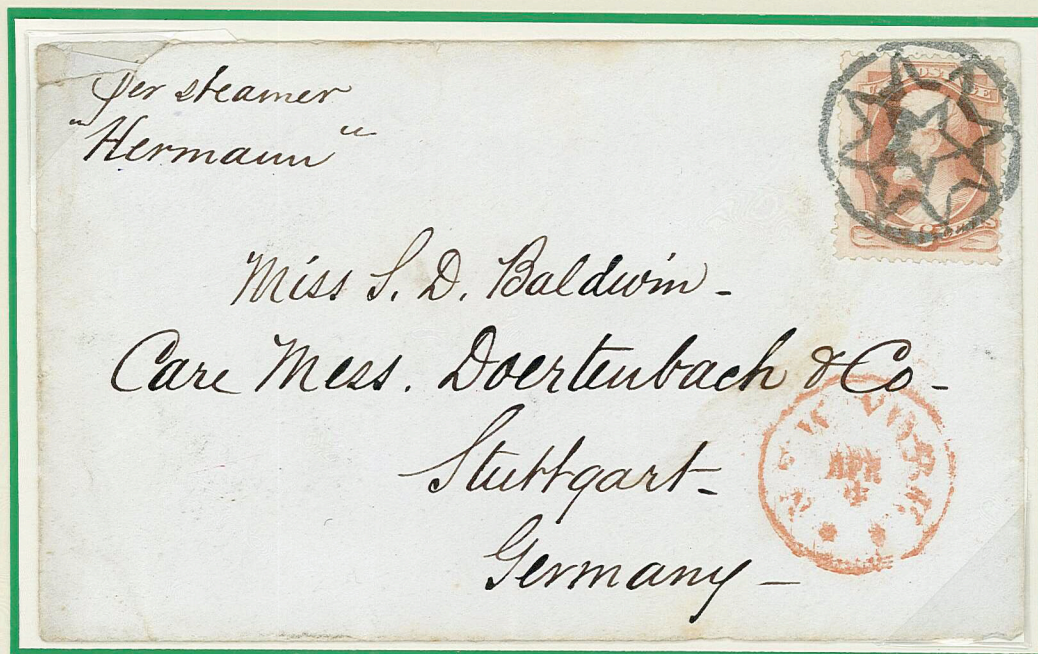 per steamer
"Hermann"
POSTAGE
Miss S. D. Baldwin -
Care Mess. Doertenbach & Co -
Stuttgart -
Germany -
NEW YORK
APR
4